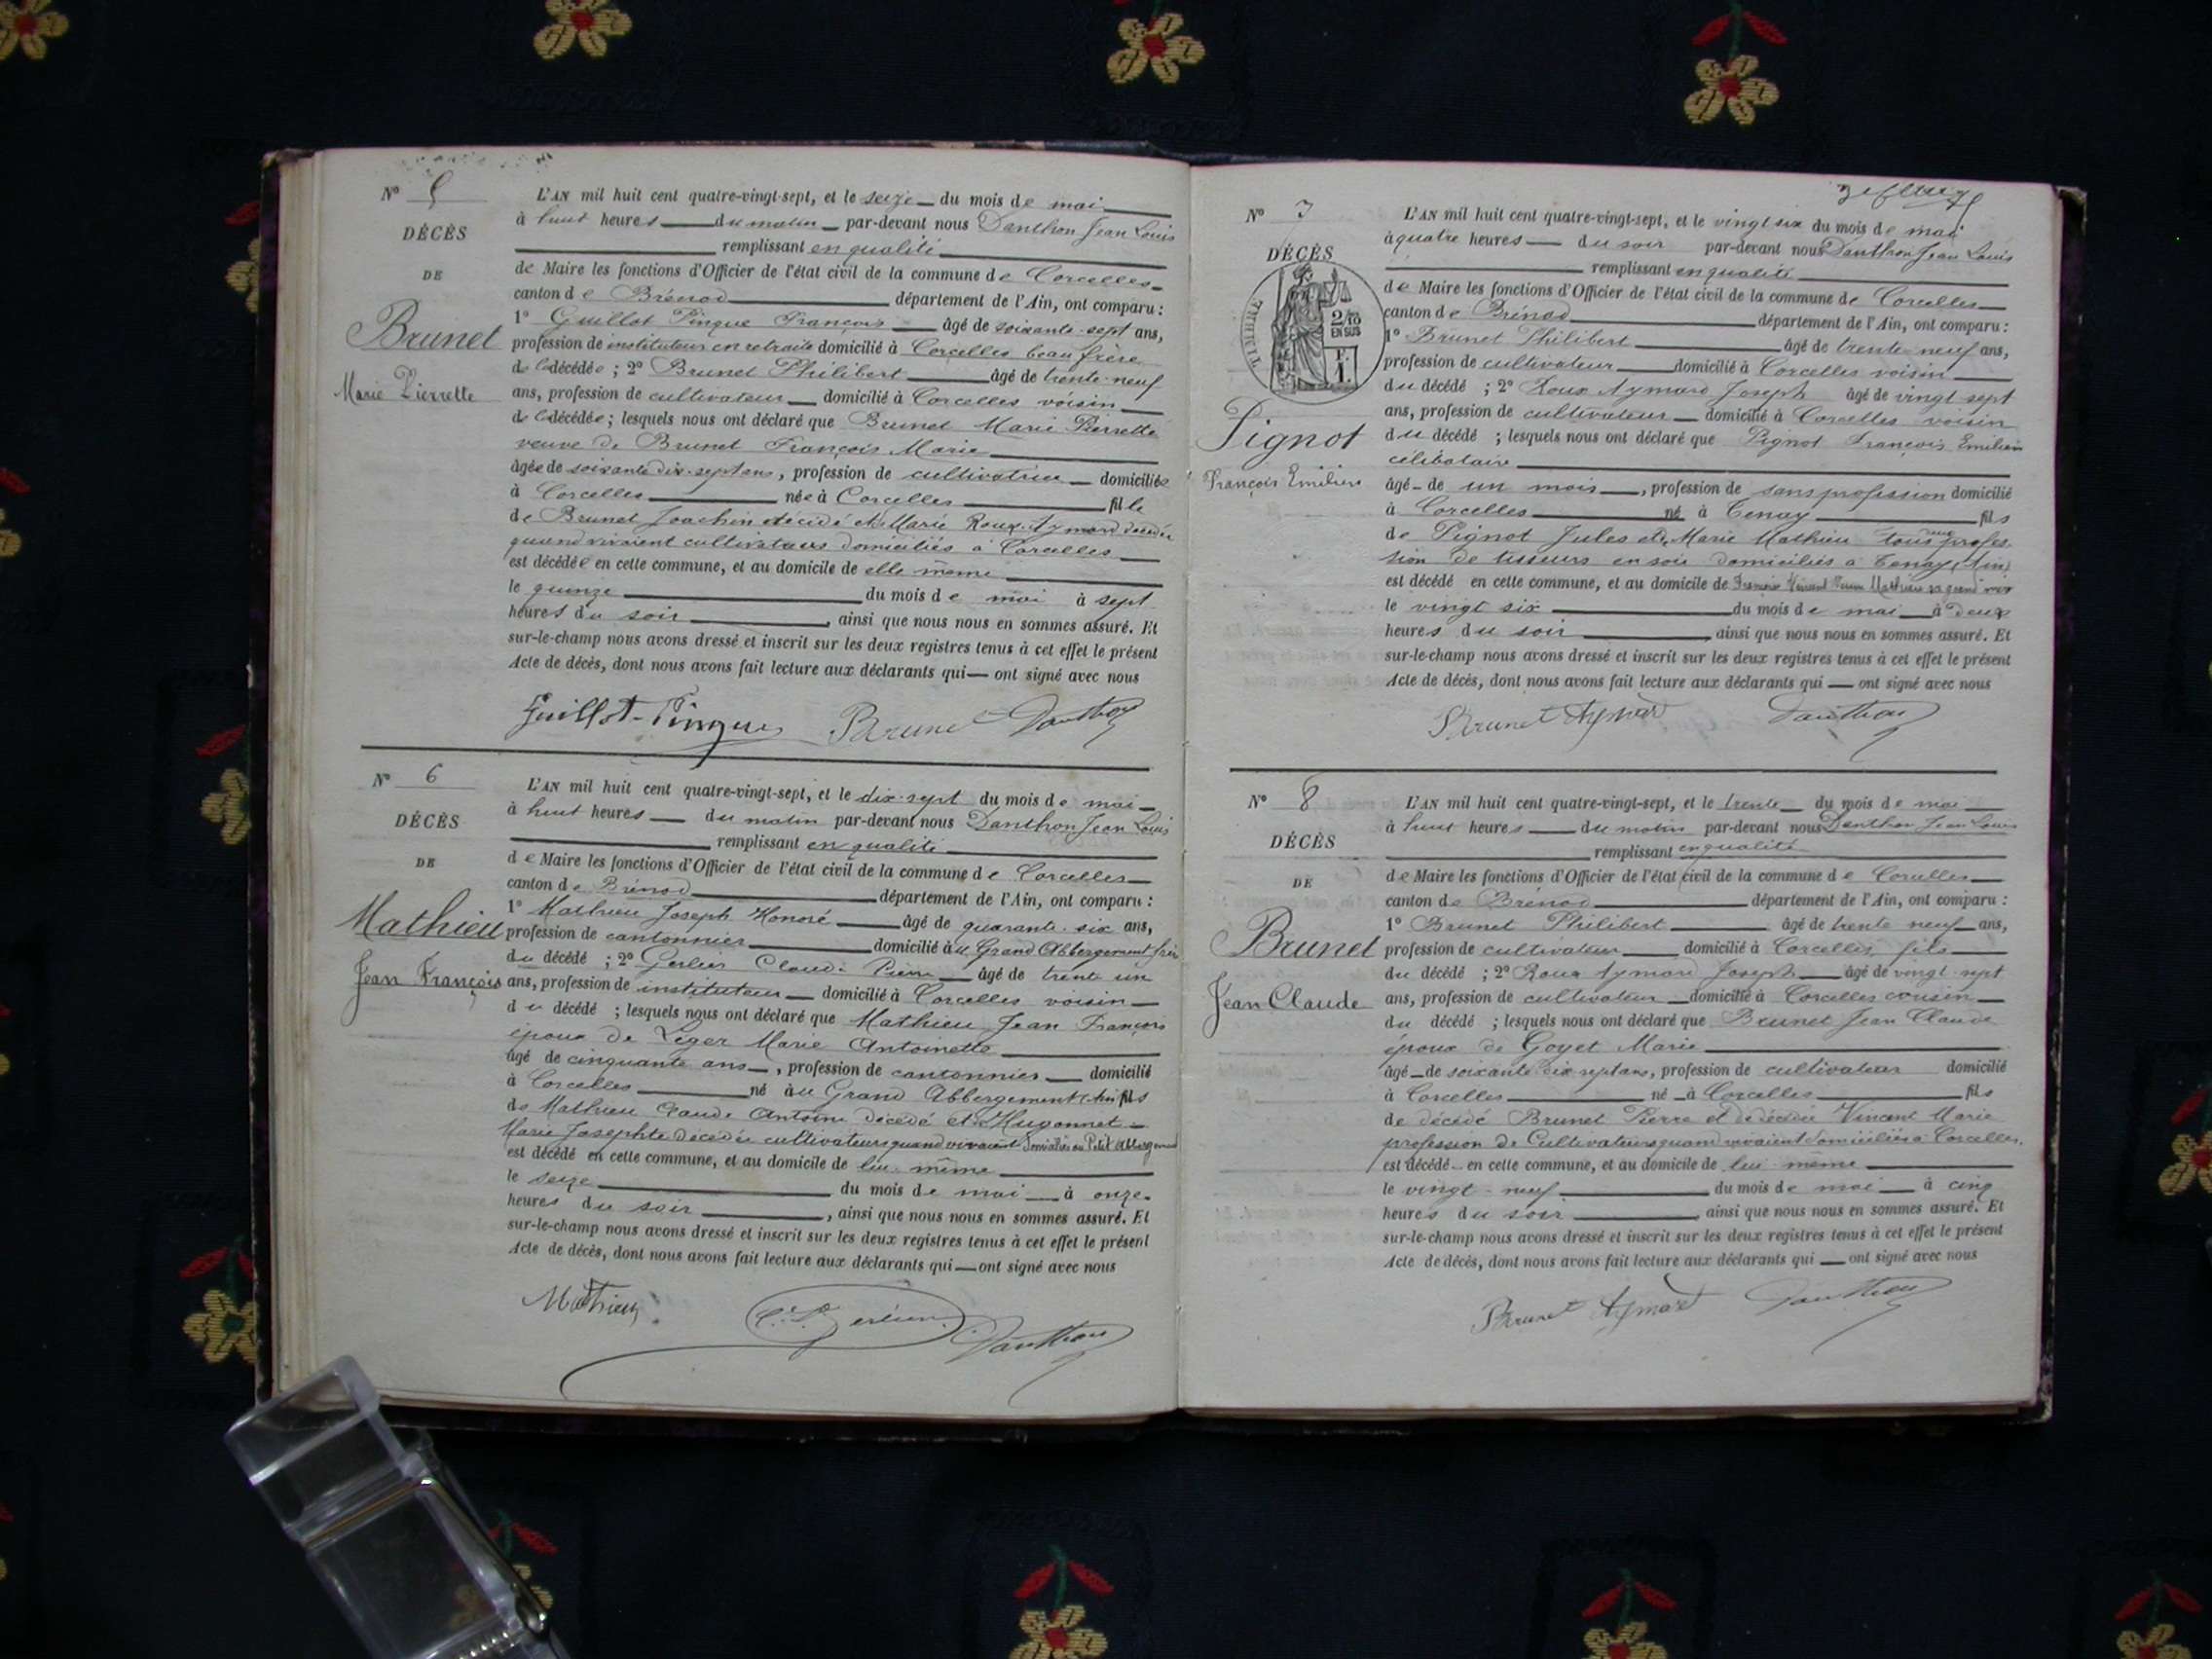 N° 5
DÉCÈS
DE
Brunet
Marie Pierrette
L'AN mil huit cent quatre-vingt-sept, et le seize du mois de mai
à huit heures du matin par-devant nous Danthon Jean Louis
remplissant en qualité
de Maire les fonctions d'Officier de l'état civil de la commune de Corcelles
canton de Brénod département de l'Ain, ont comparu :
1° Guillot Pingue François âgé de soixante-sept ans,
profession de instituteur en retraite domicilié à Corcelles beau frère
de la décédée ; 2° Brunet Philibert âgé de trente-neuf
ans, profession de cultivateur domicilié à Corcelles voisin
de la décédée ; lesquels nous ont déclaré que Brunet Marie Pierrette
veuve de Brunet François Marie
âgée de soixante dix-sept ans, profession de cultivatrice domiciliée
à Corcelles née à Corcelles fille
de Brunet Joachin décédé et de Marie Roux-Aymard décédée
quand vivaient cultivateurs domiciliés à Corcelles
est décédée en cette commune, et au domicile de elle même
le quinze du mois de mai à sept
heures du soir, ainsi que nous nous en sommes assuré. Et
sur-le-champ nous avons dressé et inscrit sur les deux registres tenus à cet effet le présent
Acte de décès, dont nous avons fait lecture aux déclarants qui ont signé avec nous
Guillot-Pingue Brunet Danthon
N° 6
DÉCÈS
DE
Mathieu
Jean François
L'AN mil huit cent quatre-vingt-sept, et le dix-sept du mois de mai
à huit heures du matin par-devant nous Danthon Jean Louis
remplissant en qualité
de Maire les fonctions d'Officier de l'état civil de la commune de Corcelles
canton de Brénod département de l'Ain, ont comparu :
1° Mathieu Joseph Honoré âgé de quarante-six ans,
profession de cantonnier domicilié à u Grand Abbergement frère
du décédé ; 2° Gerlier Claude Pierre âgé de trente un
ans, profession de instituteur domicilié à Corcelles voisin
du décédé ; lesquels nous ont déclaré que Mathieu Jean François
époux de Léger Marie Antoinette
âgé de cinquante ans, profession de cantonnier domicilié
à Corcelles né au Grand Abbergement (Ain) fils
de Mathieu Claude Antoine décédé et de Hugonnet
Marie Josephte décédée cultivateurs quand vivaient domiciliés au Petit Abbergement
est décédé en cette commune, et au domicile de lui-même
le seize du mois de mai à onze
heures du soir, ainsi que nous nous en sommes assuré. Et
sur-le-champ nous avons dressé et inscrit sur les deux registres tenus à cet effet le présent
Acte de décès, dont nous avons fait lecture aux déclarants qui ont signé avec nous
Mathieu C. P. Gerlier Danthon
N° 7
DÉCÈS
TIMBRE
2/10
EN SUS
F.
1.
Pignot
François Emilien
L'AN mil huit cent quatre-vingt-sept, et le vingt six du mois de mai
à quatre heures du soir par-devant nous Danthon Jean Louis
remplissant en qualité
de Maire les fonctions d'Officier de l'état civil de la commune de Corcelles
canton de Brénod département de l'Ain, ont comparu :
1° Brunet Philibert âgé de trente-neuf ans,
profession de cultivateur domicilié à Corcelles voisin
du décédé ; 2° Roux Aymard Joseph âgé de vingt sept
ans, profession de cultivateur domicilié à Corcelles voisin
du décédé ; lesquels nous ont déclaré que Pignot François Emilien
célibataire
âgé de un mois, profession de sans profession domicilié
à Corcelles né à Tenay fils
de Pignot Jules et de Marie Mathieu tous deux profes-
sion de tisseurs en soie domiciliés à Tenay (Ain)
est décédé en cette commune, et au domicile de Vincent Mathieu sa grand mère
le vingt six du mois de mai à deux
heures du soir, ainsi que nous nous en sommes assuré. Et
sur-le-champ nous avons dressé et inscrit sur les deux registres tenus à cet effet le présent
Acte de décès, dont nous avons fait lecture aux déclarants qui ont signé avec nous
Brunet Aymard Danthon
N° 8
DÉCÈS
DE
Brunet
Jean Claude
L'AN mil huit cent quatre-vingt-sept, et le trente du mois de mai
à huit heures du matin par-devant nous Danthon Jean Louis
remplissant en qualité
de Maire les fonctions d'Officier de l'état civil de la commune de Corcelles
canton de Brénod département de l'Ain, ont comparu :
1° Brunet Philibert âgé de trente neuf ans,
profession de cultivateur domicilié à Corcelles, fils
du décédé ; 2° Roux Aymard Joseph âgé de vingt-sept
ans, profession de cultivateur domicilié à Corcelles cousin
du décédé ; lesquels nous ont déclaré que Brunet Jean Claude
époux de Goyet Marie
âgé de soixante dix sept ans, profession de cultivateur domicilié
à Corcelles né à Corcelles fils
de décédé Brunet Pierre et de décédée Vincent Marie
profession de Cultivateurs quand vivaient domiciliés à Corcelles,
est décédé en cette commune, et au domicile de lui-même
le vingt-neuf du mois de mai à cinq
heures du soir, ainsi que nous nous en sommes assuré. Et
sur-le-champ nous avons dressé et inscrit sur les deux registres tenus à cet effet le présent
Acte de décès, dont nous avons fait lecture aux déclarants qui ont signé avec nous
Brunet Aymard Danthon